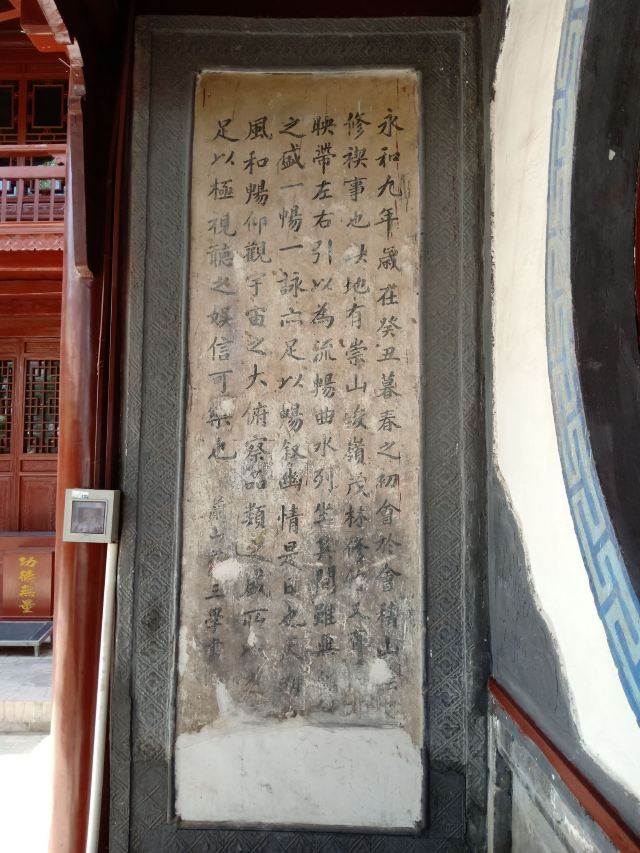 永和九年歲在癸丑暮春之初會於會稽山
修禊事也此地有崇山峻嶺茂林修又
映帶左右引以為流暢曲水列坐其間雖無
之盛一暢一詠亦足以暢叙幽情是日也天
風和暢仰觀宇宙之大俯察品類之盛所
足以極視聽之娛信可樂也 山三學書
功德無量